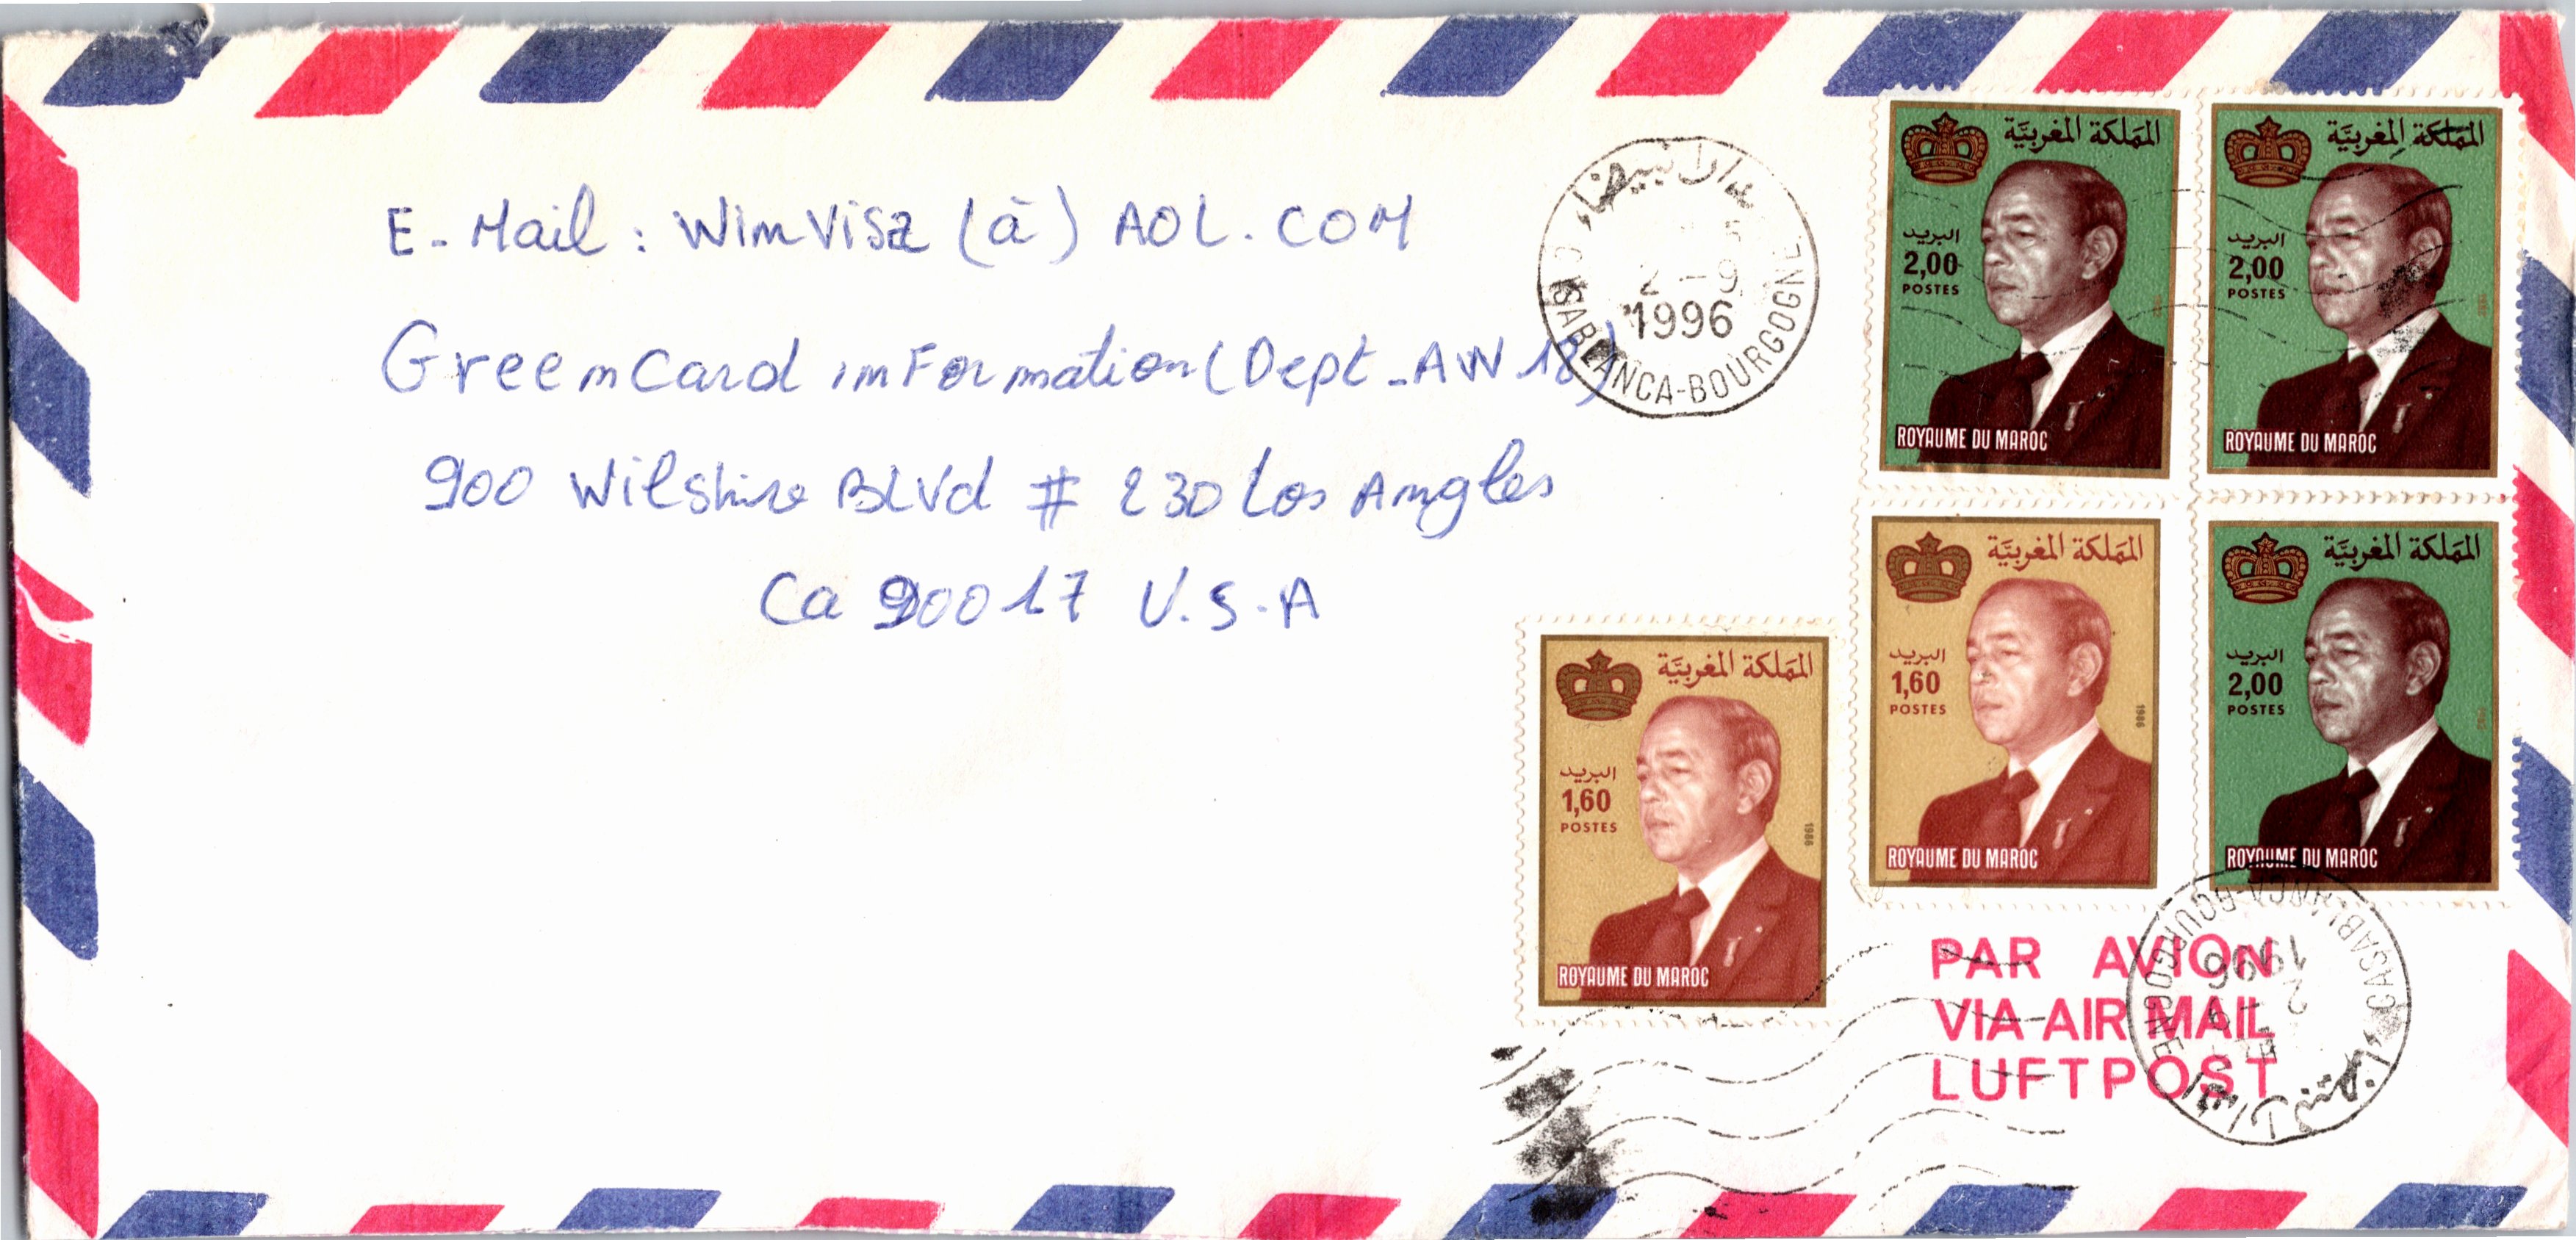 E-Mail : WimVisa (à) AOL.COM
GreenCard imFormation (Dept-AW 18)
900 Wilshire BLVd # 230 Los Amgles
Ca 90017 U.S.A
الدار البيضاء
2 - 9
1996
CASABLANCA-BOURGOGNE
المملكة المغربية
البريد
2,00
POSTES
ROYAUME DU MAROC
المملكة المغربية
البريد
2,00
POSTES
ROYAUME DU MAROC
المملكة المغربية
البريد
1,60
POSTES
1986
ROYAUME DU MAROC
المملكة المغربية
البريد
2,00
POSTES
ROYAUME DU MAROC
المملكة المغربية
البريد
1,60
POSTES
1986
ROYAUME DU MAROC
PAR AVION
VIA AIR MAIL
LUFTPOST
CASABLANCA-BOURGOGNE
1996
2 - 9
الدار البيضاء